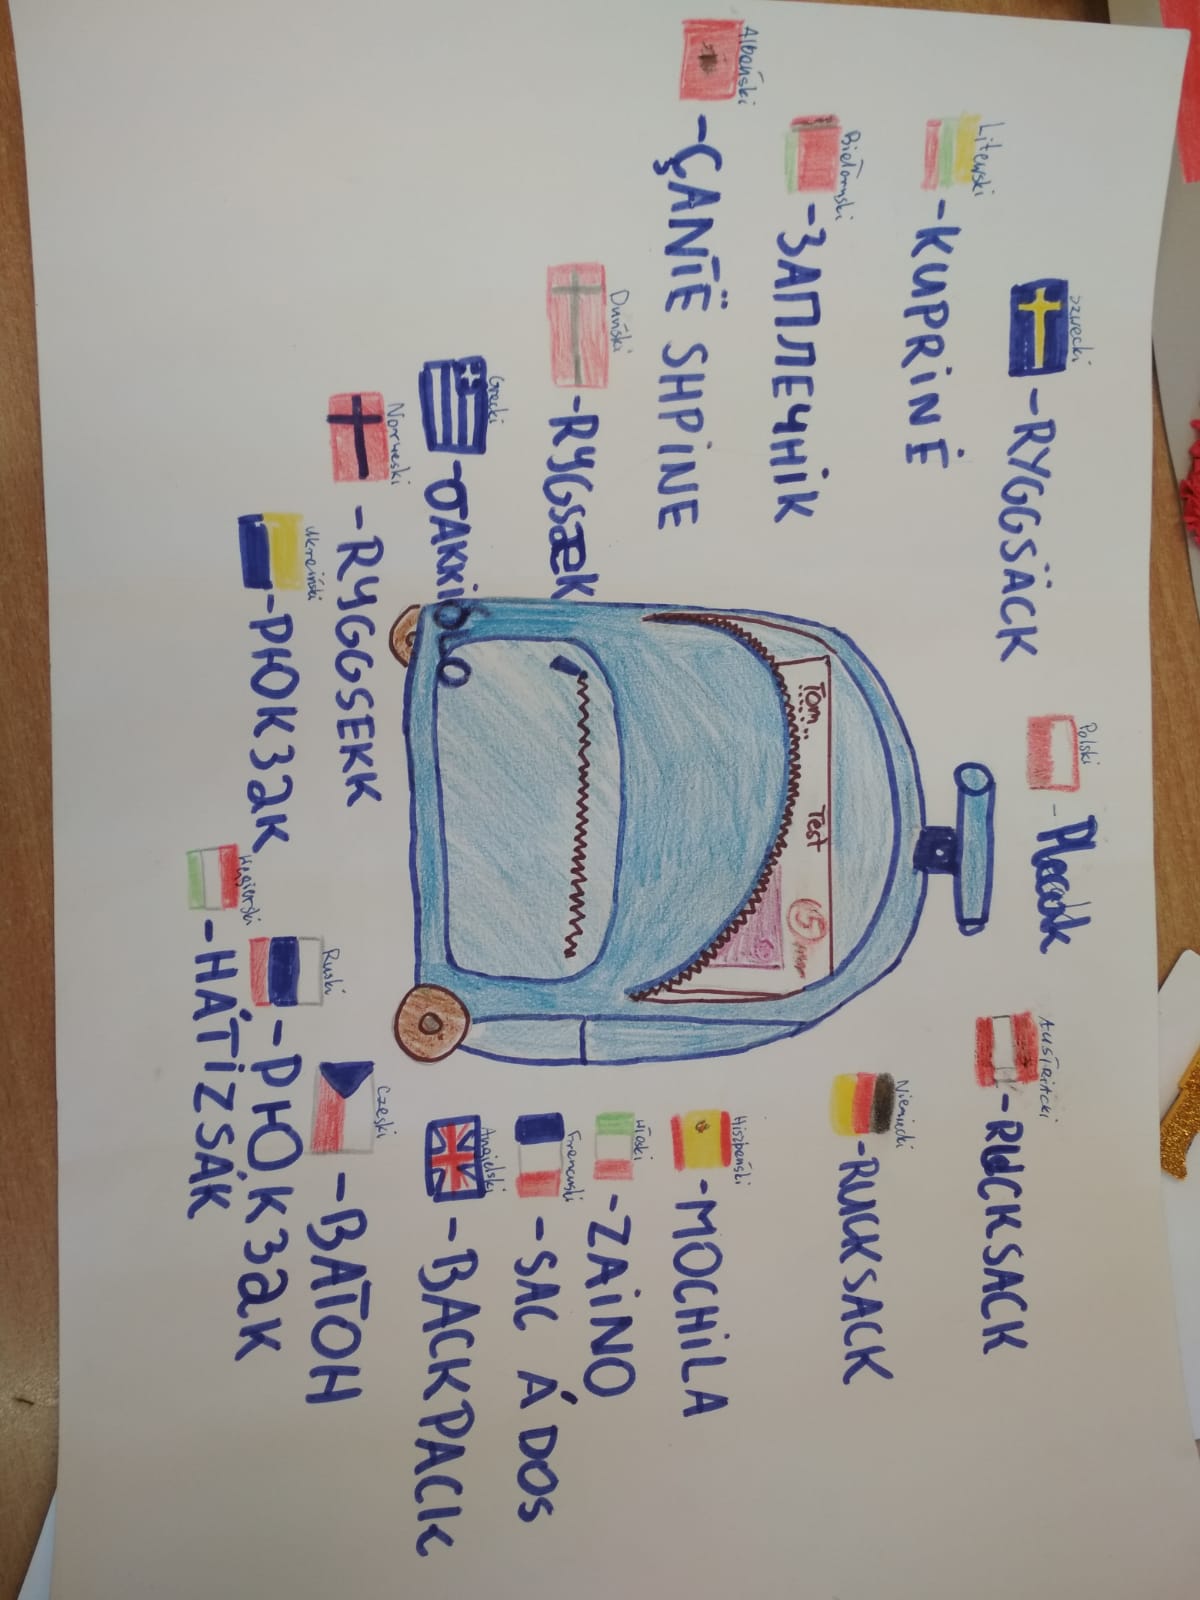 Polski
- Plecak
Szwecki
- RYGGSÄCK
AUSTRIACKI
- RUCKSACK
Litewski
- KUPRINĖ
Niemiecki
- RUCKSACK
Białoruski
- ЗАПЛЕЧНІК
Tom
Test
5
Albański
- ÇANTË SHPINE
Hiszpański
- MOCHILA
Duński
- RYGSÆK
Włoski
- ZAINO
Francuski
- SAC Á DOS
Grecki
- σακκίδιο
Angielski
- BACKPACK
Norweski
- RYGGSEKK
Czeski
- BATOH
Ukraiński
- РЮКЗаК
Ruski
- РЮКЗаК
Węgierski
- HÁTIZSÁK